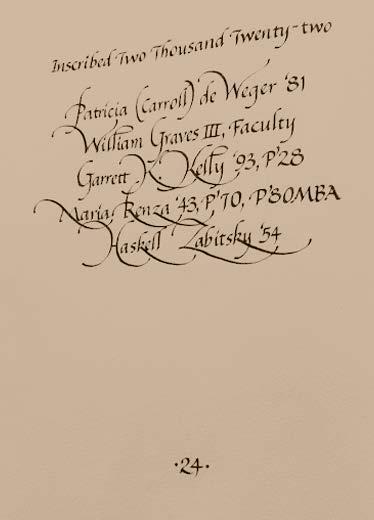 Inscribed Two Thousand Twenty-two
Patricia (Carroll) de Weger '81
William Graves III, Faculty
Garrett K. Kelly '93, P'28
Maria Renza '43, P'70, P'80MBA
Haskell Zabitsky '54
·24·